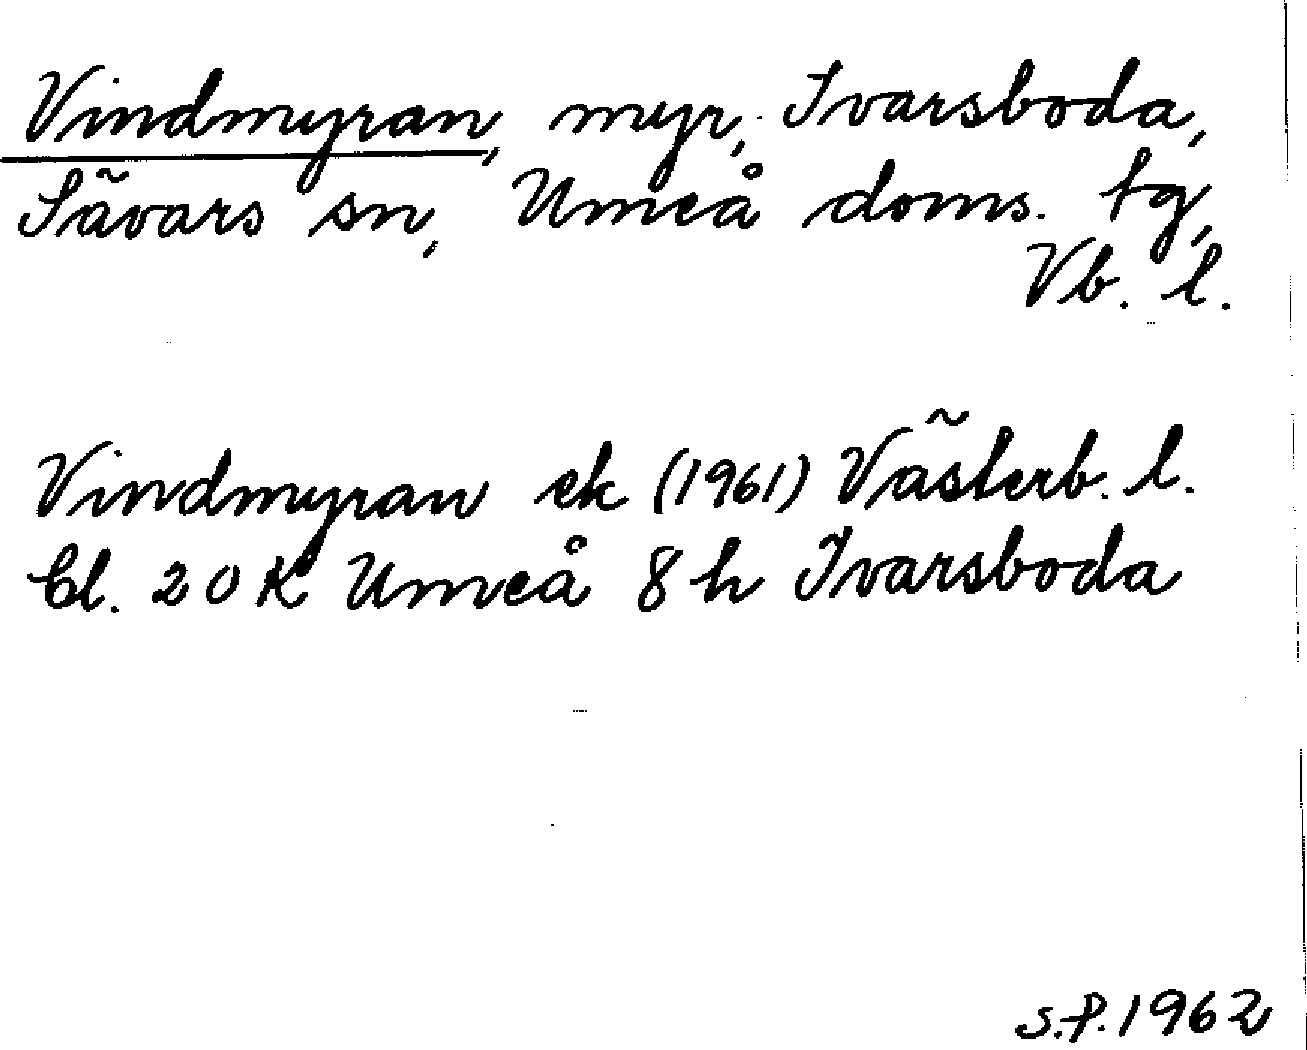 Vindmyran, myr, Ivarsboda,
Sävars sn, Umeå doms. tg,
Vb. l.
Vindmyran ek (1961) Västerb. l.
Bl. 20 K Umeå 8 h Ivarsboda
S.P. 1962